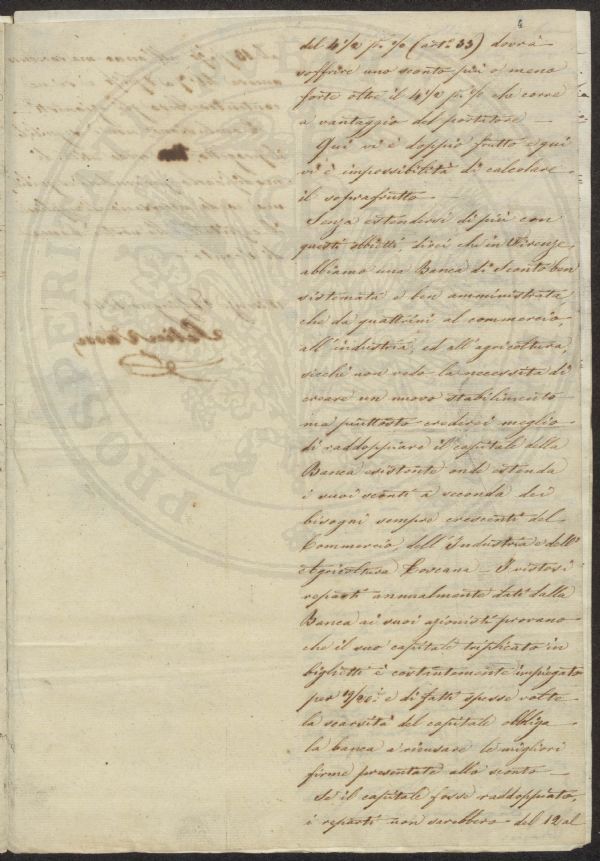 4
del 4½ p.% (art.º 33) dovrà
soffrire uno sconto più o meno
forte oltre il 4½ p.% che corre
a vantaggio del portatore —
Qui vi è doppio frutto e qui
vi è impossibilità di calcolare
il soprafrutto —
Senza estendersi di più con
questi obbietti, dirò che in Firenze
abbiamo una Banca di Sconto ben
sistemata e ben amministrata,
che da quattrini al commercio,
all'industria, ed all'agricoltura,
sicchè non vedo la necessità di
creare un nuovo stabilimento
ma piuttosto crederei meglio
di raddoppiare il capitale della
Banca esistente onde estenda
i suoi sconti a seconda dei
bisogni sempre crescenti del
Commercio, dell'Industria e dell'
Agricoltura Toscana — I vistosi
reparti annualmente dati dalla
Banca ai suoi azionisti provano
che il suo capitale triplicato in
biglietti è costantemente impiegato
per e di fatti spesse volte
la scarsità del capitale obbliga
la banca a ricusare le migliori
firme presentate allo sconto —
Se il capitale fosse raddoppiato,
i reparti non sarebbero del 12 al